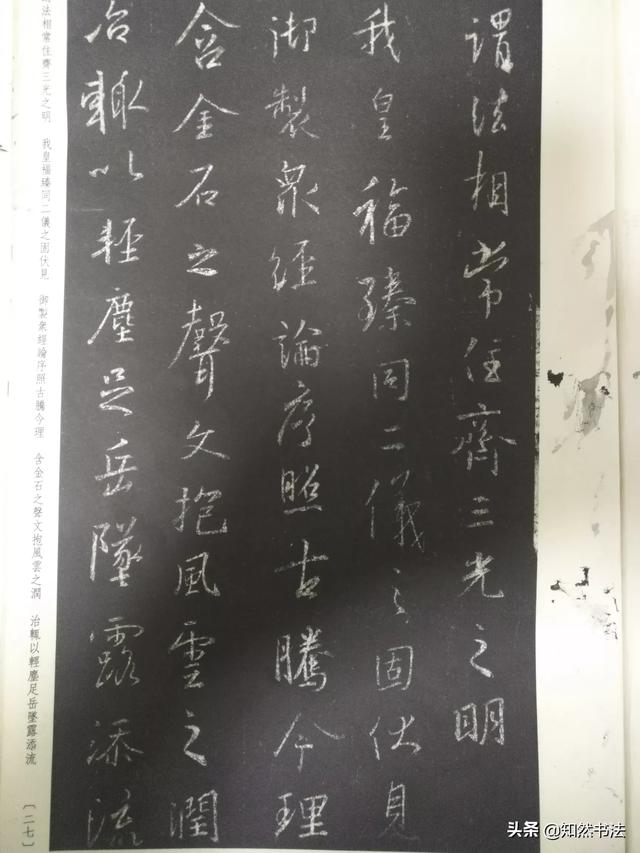 謂法相常住齊三光之明
我皇福臻同二儀之固伏見
御製衆經論序照古騰今理
含金石之聲文抱風雲之潤
治輒以輕塵足岳墜露添流
法相常住齊三光之明 我皇福臻同二儀之固伏見 御製衆經論序照古騰今理 含金石之聲文抱風雲之潤 治輒以輕塵足岳墜露添流
〔二七〕
头条 @知然书法